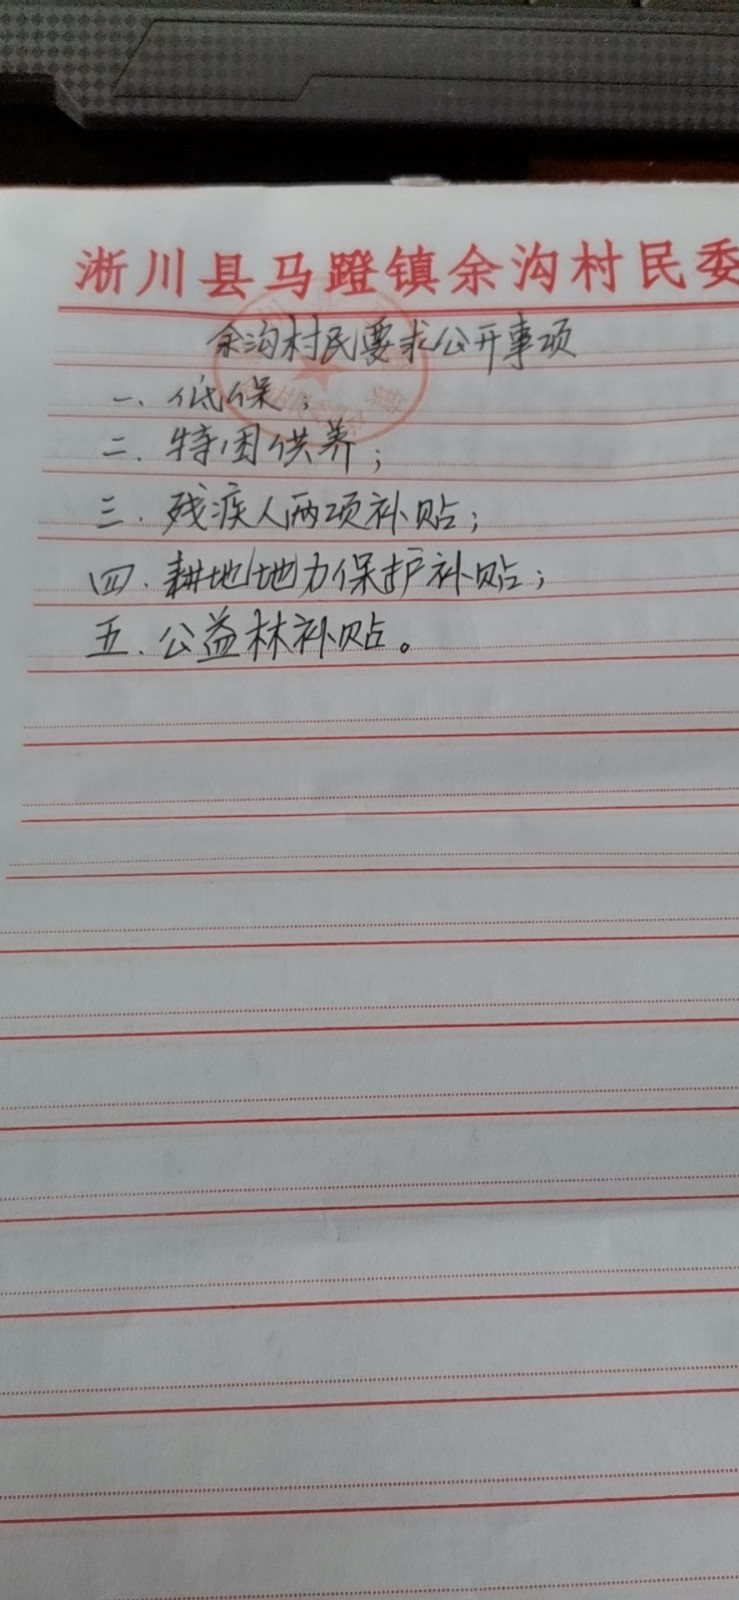 淅川县马蹬镇余沟村民委
余沟村民要求公开事项
一、低保；
二．特困供养；
三．残疾人两项补贴；
四．耕地地力保护补贴；
五．公益林补贴。